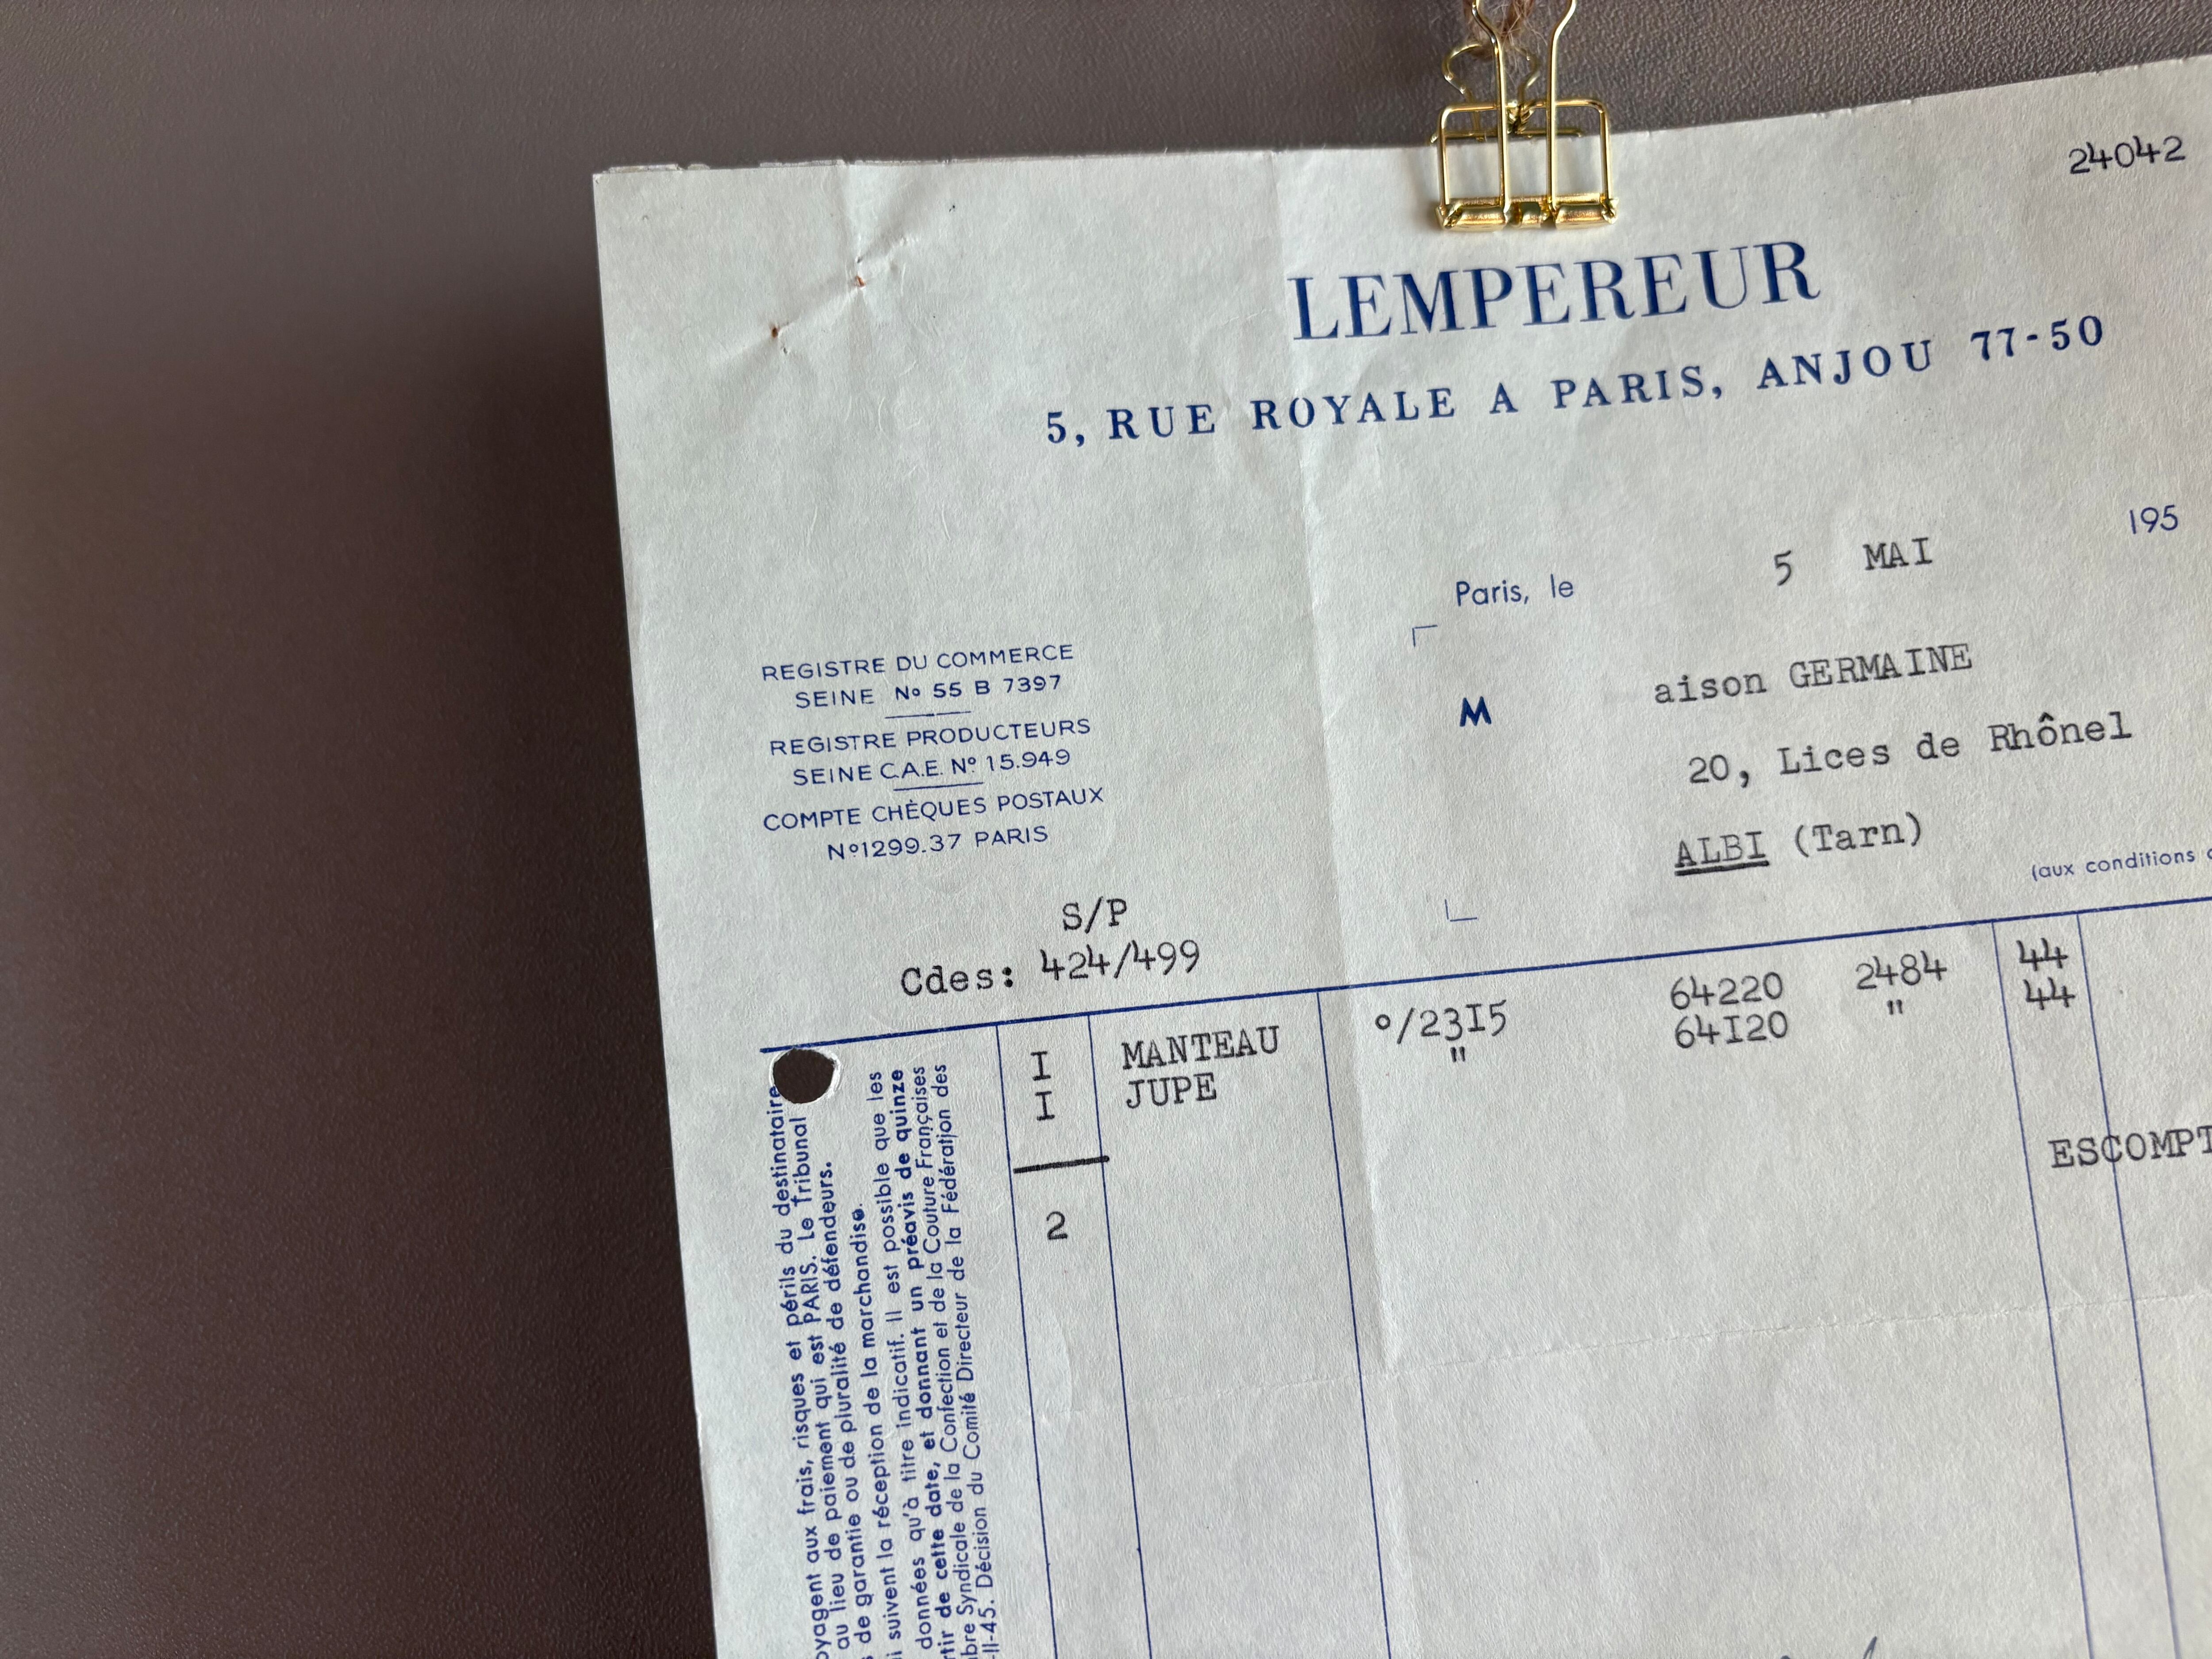 24042
LEMPEREUR
5, RUE ROYALE A PARIS, ANJOU 77-50
Paris, le 5 MAI 195
REGISTRE DU COMMERCE
SEINE No 55 B 7397
REGISTRE PRODUCTEURS
SEINE C.A.E. No 15.949
COMPTE CHÈQUES POSTAUX
No 1299.37 PARIS
M aison GERMAINE
20, Lices de Rhônel
ALBI (Tarn)
(aux conditions
S/P
Cdes: 424/499
I MANTEAU °/23I5 64220 2484 44
I JUPE " 64I20 " 44
ESCOMPT
2
oyagent aux frais, risques et périls du destinataire
au lieu de paiement qui est PARIS. Le Tribunal
de garantie ou de pluralité de défendeurs.
suivent la réception de la marchandise.
données qu'à titre indicatif. Il est possible que les
rtir de cette date, et donnant un préavis de quinze
bre Syndicale de la Confection et de la Couture Françaises
-II-45. Décision du Comité Directeur de la Fédération des